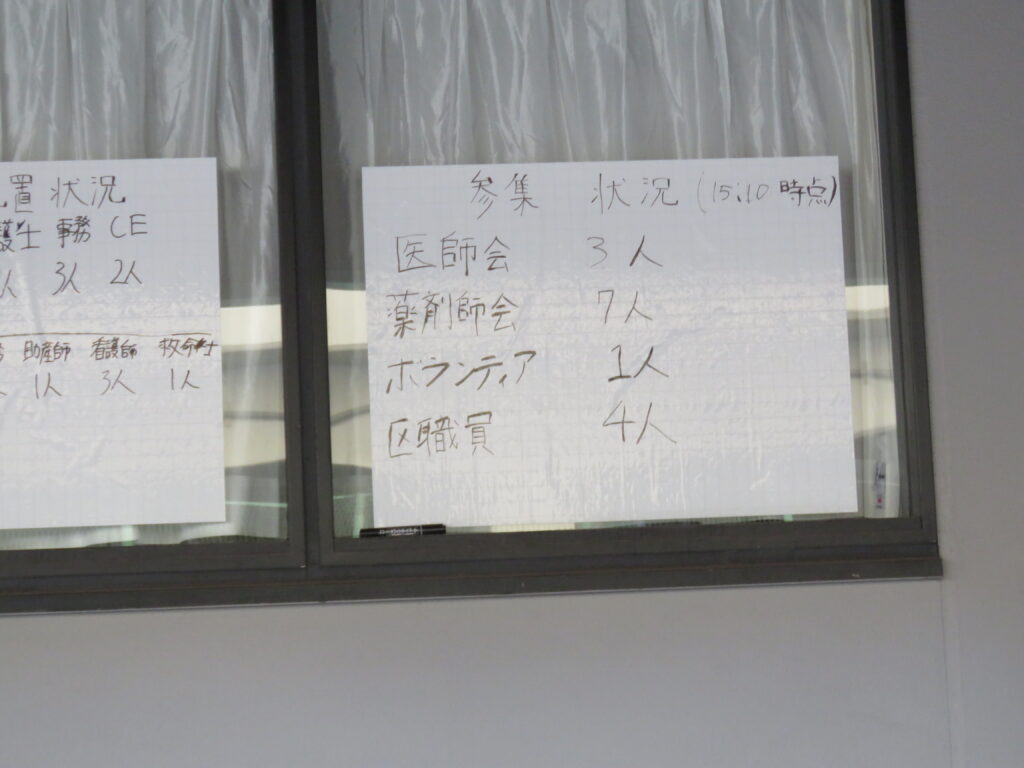 置状況
護士 事務 CE
人 3人 2人
助産師 看護師 救命士
人 1人 3人 1人
参集 状況 (15:10 時点)
医師会 3人
薬剤師会 7人
ボランティア 1人
区職員 4人